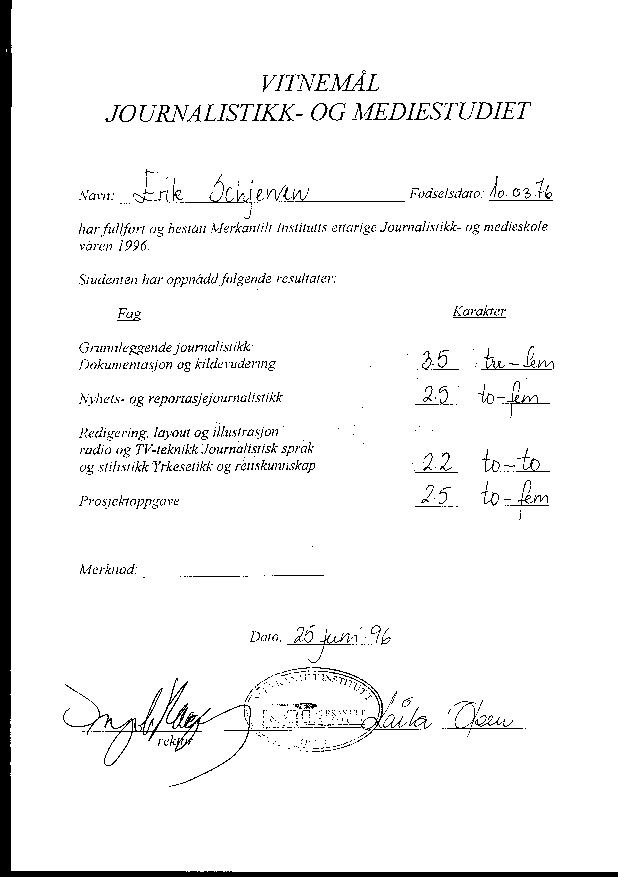 VITNEMÅL
JOURNALISTIKK- OG MEDIESTUDIET
Navn: Erik Schjenen Fødselsdato: 10.03.76
har fullført og bestått Merkantilt Institutts ettårige Journalistikk- og medieskole
våren 1996.
Studenten har oppnådd følgende resultater:
Fag Karakter
Grunnleggende journalistikk:
Dokumentasjon og kildevurdering 3.5 tre-fem
Nyhets- og reportasjejournalistikk 2.5 to-fem
Redigering, layout og illustrasjon
radio og TV-teknikk Journalistisk språk
og stilistikk Yrkesetikk og rettskunnskap 2.2 to-to
Prosjektoppgave 2.5 to-fem
Merknad:
Dato: 25 juni 96
rektor Laila Olsen